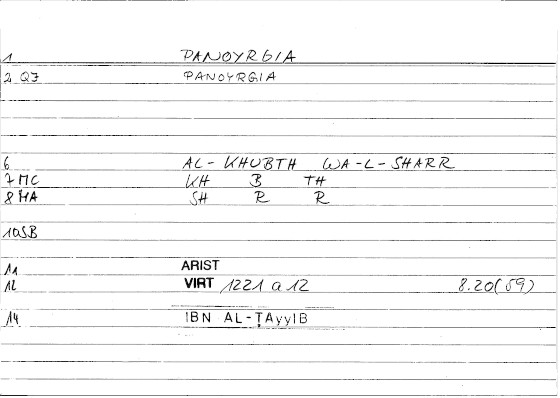 1 PANOYRGIA
2 QJ PANOYRGIA
6 AL-KHUBTH WA-L-SHARR
7 MC KH B TH
8 MA SH R R
10 SB
11 ARIST
12 VIRT 1221 a 12 8.20(59)
14 IBN AL-ṬAyyIB